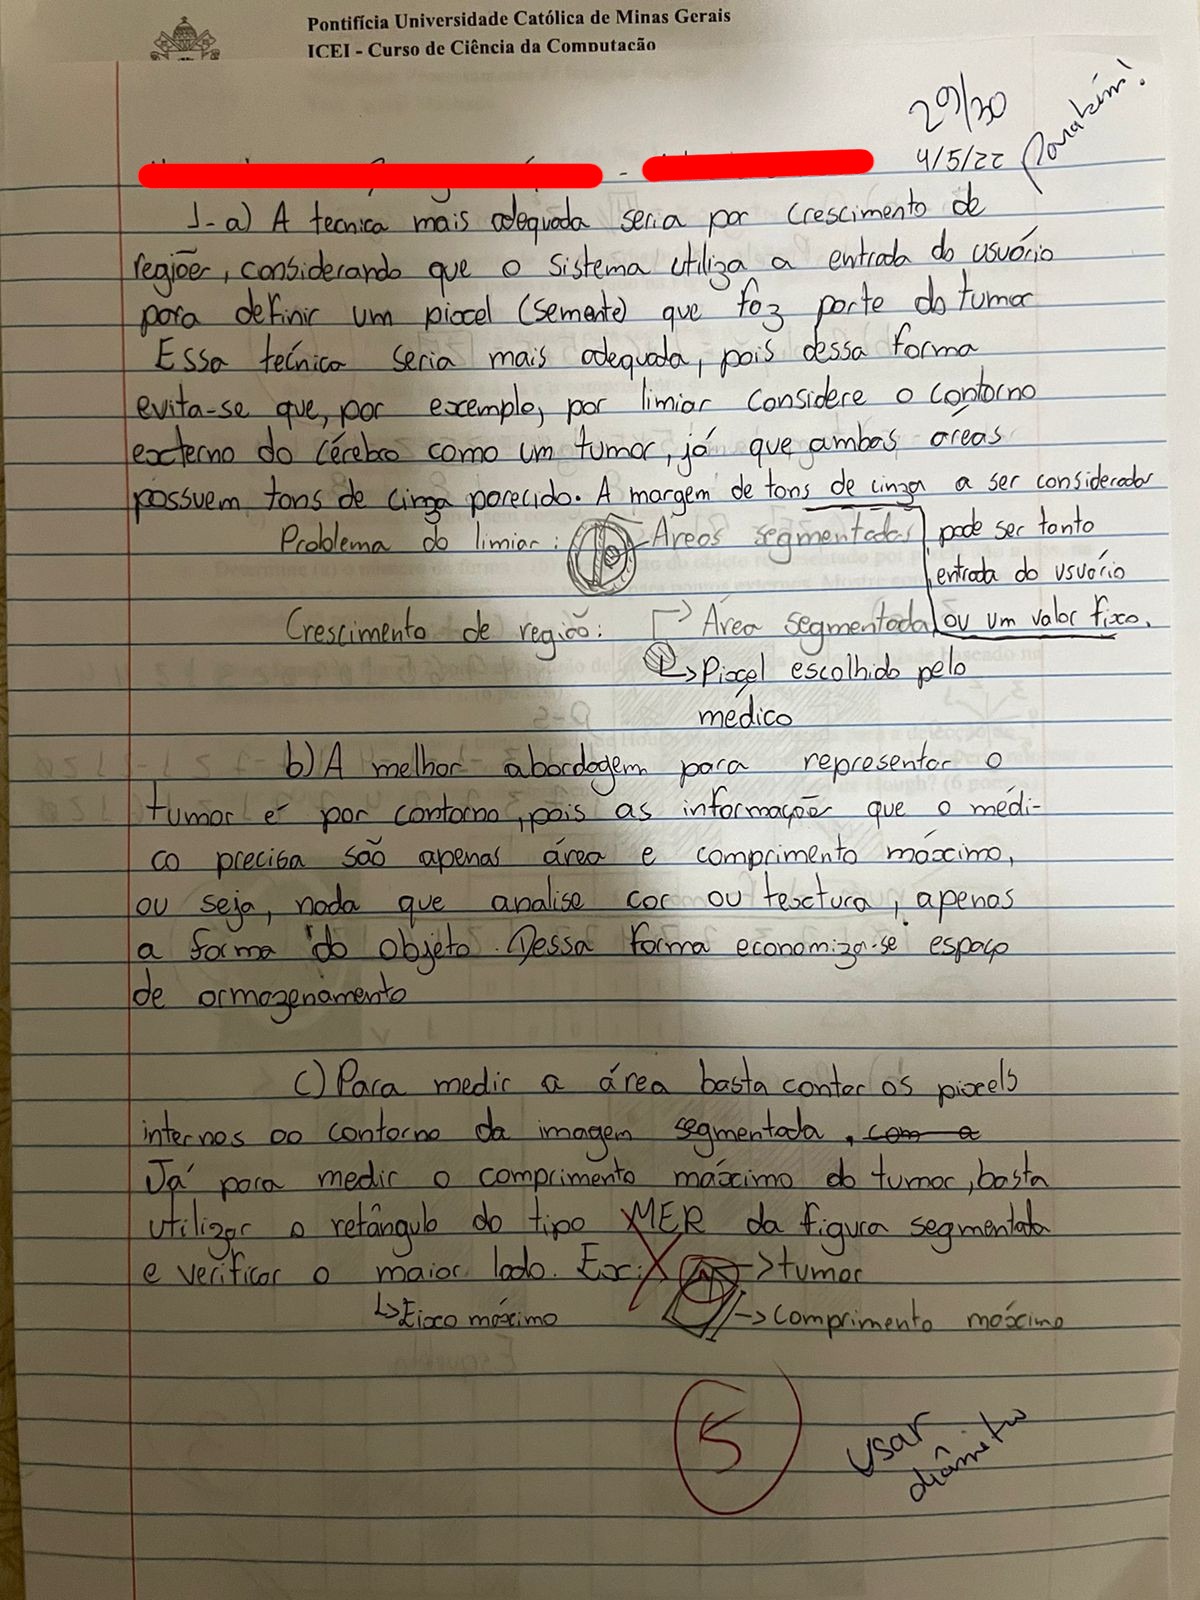 Pontifícia Universidade Católica de Minas Gerais
ICEI - Curso de Ciência da Computação
29/30
4/5/22 Parabéns!
1-a) A tecnica mais adequada seria por crescimento de
regiões, considerando que o sistema utiliza a entrada do usuário
para definir um pixel (semente) que faz parte do tumor
Essa tecnica seria mais adequada, pois dessa forma
evita-se que, por exemplo, por limiar considere o contorno
externo do cérebro como um tumor, já que ambas áreas
possuem tons de cinza parecido. A margem de tons de cinza a ser considerador
Problema do limiar: Áreas segmentadas pode ser tanto
entrada do usuário
Crescimento de região: Área segmentada ou um valor fixo.
Pixel escolhido pelo
médico
b) A melhor abordagem para representar o
tumor é por contorno, pois as informações que o médi-
co precisa são apenas área e comprimento máximo,
ou seja, nada que analise cor ou textura, apenas
a forma do objeto. Dessa forma economiza-se espaço
de armazenamento
c) Para medir a área basta contar os pixels
internos ao contorno da imagem segmentada, com a
Já para medir o comprimento máximo do tumor, basta
utilizar o retângulo do tipo MER da figura segmentada
e verificar o maior lado. Ex: tumor
Eixo máximo Comprimento máximo
5 usar
diâmetro